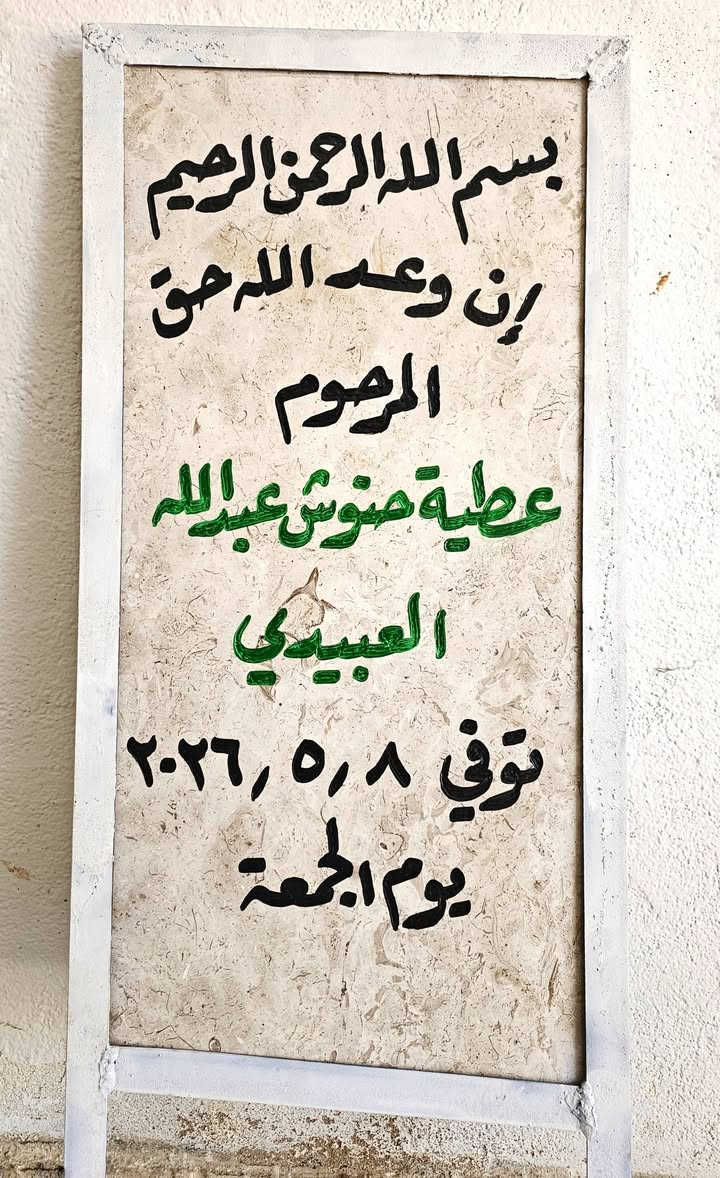 بسم الله الرحمن الرحيم
إن وعد الله حق
المرحوم
عطية حنوش عبدالله
العبيدي
توفي ٢٠٢٦/٥/٨
يوم الجمعة